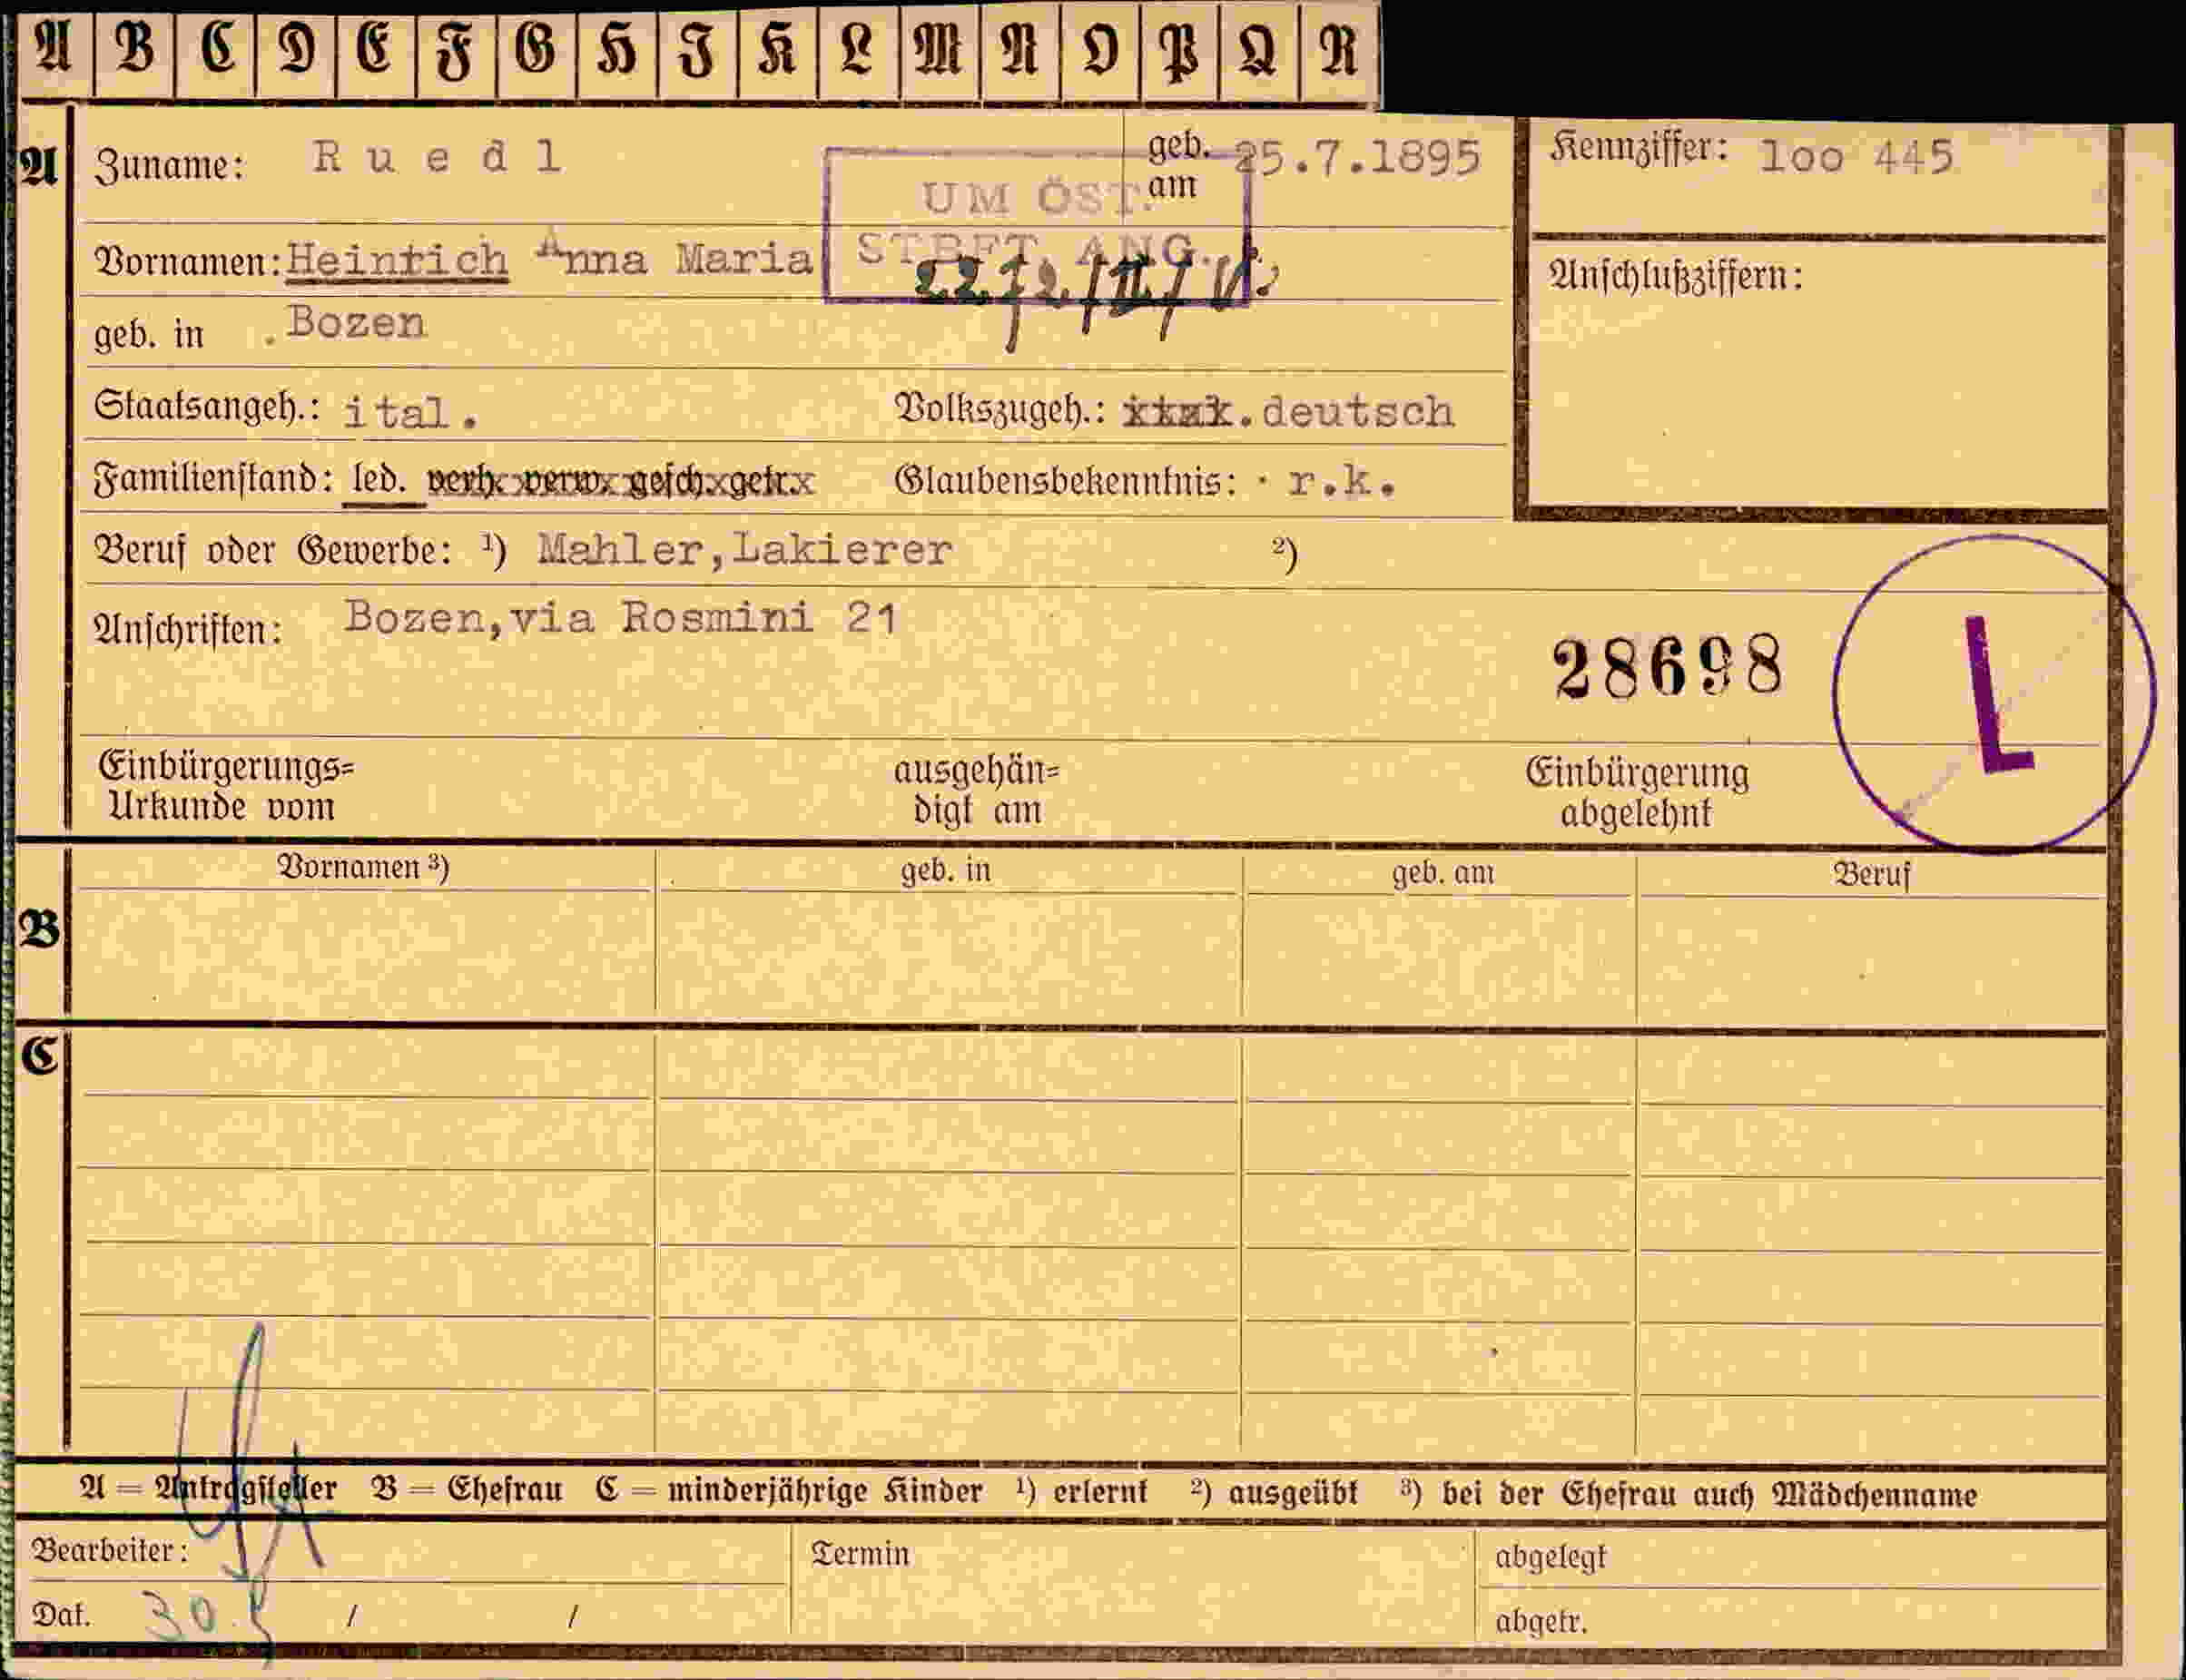 A B C D E F G H I K L M N O P Q R
A Zuname: Ruedl geb. am 25.7.1895 Kennziffer: 1oo 445
UM ÖST.
Vornamen: Heinrich Anna Maria STBFT. ANG.
Anschlußziffern:
geb. in . Bozen
Staatsangeh.: ital. Volkszugeh.: deutsch
Familienstand: led. verh. verw. gesch. getr. Glaubensbekenntnis: r.k.
Beruf oder Gewerbe: ¹) Mahler,Lakierer ²)
Anschriften: Bozen,via Rosmini 21
28698 L
Einbürgerungs= ausgehän= Einbürgerung
Urkunde vom digt am abgelehnt
Vornamen ³) geb. in geb. am Beruf
B
C
A = Antragsteller B = Ehefrau C = minderjährige Kinder ¹) erlernt ²) ausgeübt ³) bei der Ehefrau auch Mädchenname
Bearbeiter: Termin abgelegt
Dat. 30. / / abgetr.